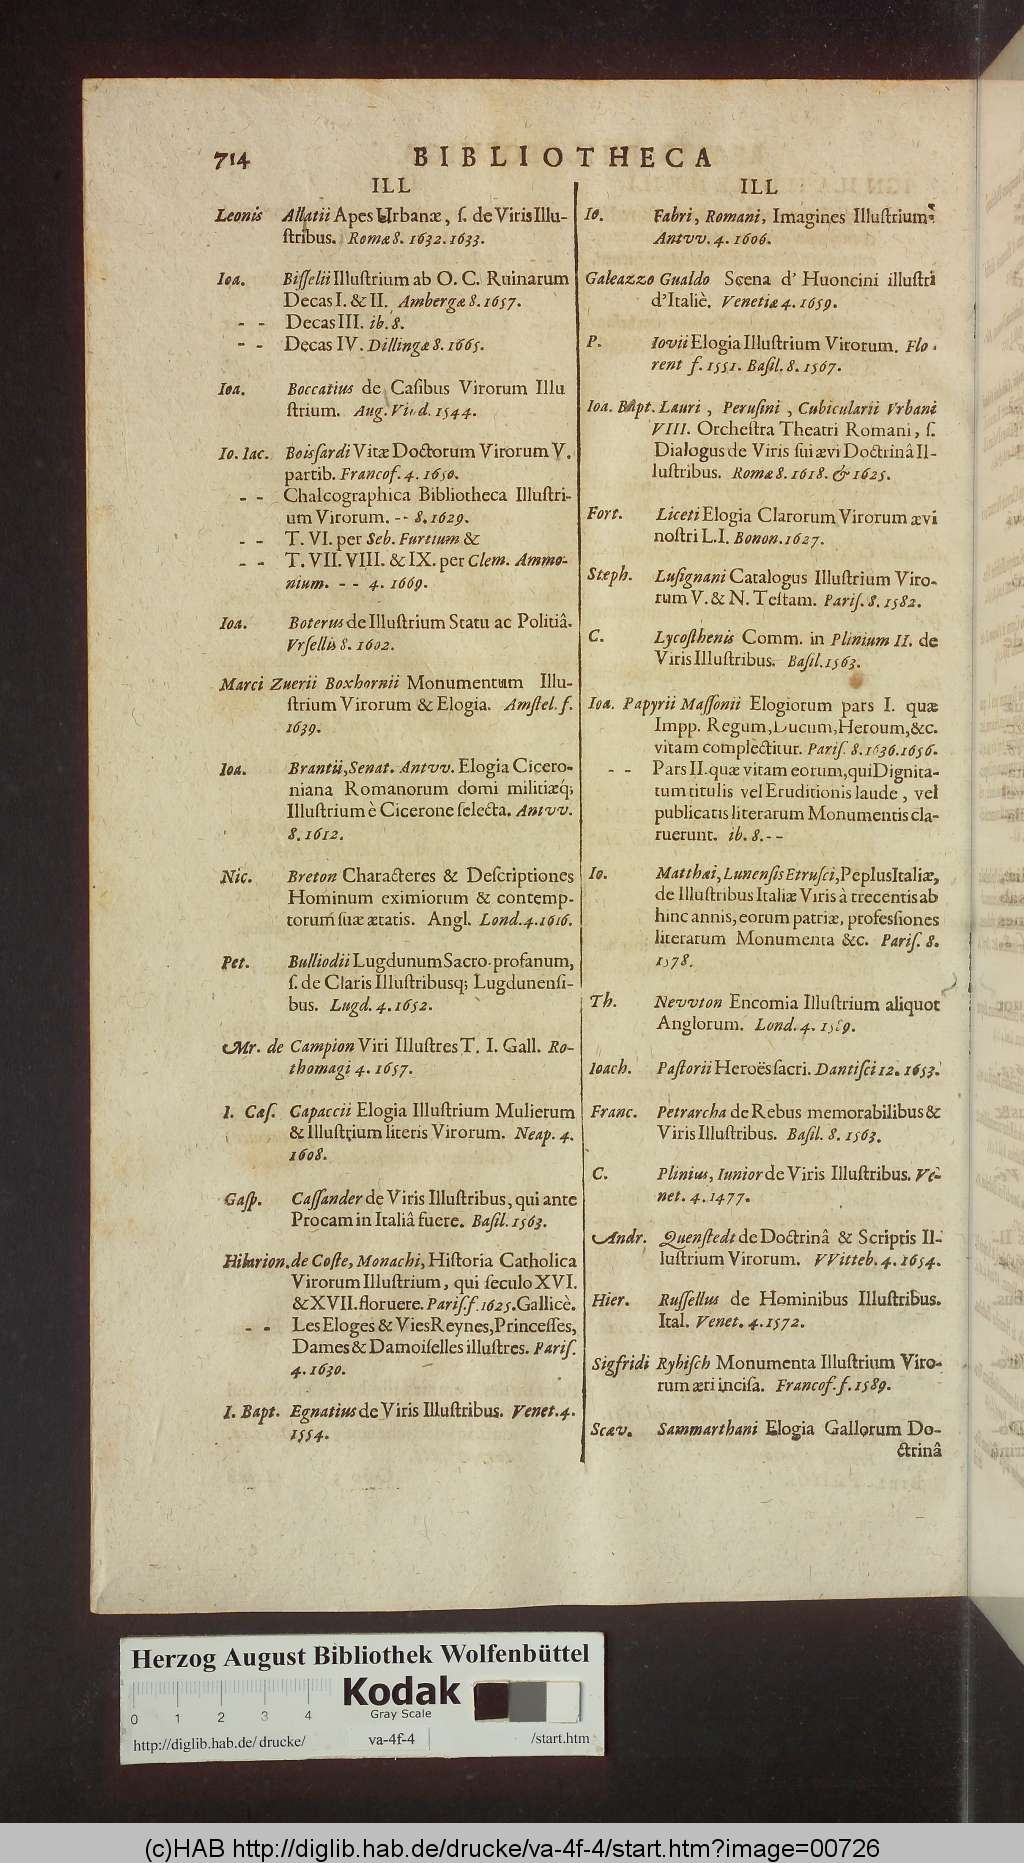 714 BIBLIOTHECA
ILL
Leonis Allatii Apes Urbanæ, ſ. de Viris Illu-
ſtribus. Romæ 8. 1632. 1633.
Ioa. Biſſelii Illuſtrium ab O. C. Ruinarum
Decas I. & II. Ambergæ 8. 1657.
- - Decas III. ib. 8.
- - Decas IV. Dillingæ 8. 1665.
Ioa. Boccatius de Caſibus Virorum Illu
ſtrium. Aug. Vind. 1544.
Io. Iac. Boiſſardi Vitæ Doctorum Virorum V.
partib. Francof. 4. 1650.
- - Chalcographica Bibliotheca Illuſtri-
um Virorum. -- 8. 1629.
- - T. VI. per Seb. Furtium &
- - T. VII. VIII. & IX. per Clem. Ammo-
nium. -- 4. 1669.
Ioa. Boterus de Illuſtrium Statu ac Politiâ.
Vrſellis 8. 1602.
Marci Zuerii Boxhornii Monumentum Illu-
ſtrium Virorum & Elogia. Amſtel. f.
1639.
Ioa. Brantii, Senat. Antvv. Elogia Cicero-
niana Romanorum domi militiæq;
Illuſtrium è Cicerone ſelecta. Antvv.
8. 1612.
Nic. Breton Characteres & Deſcriptiones
Hominum eximiorum & contemp-
torum ſuæ ætatis. Angl. Lond. 4. 1616.
Pet. Bulliodii Lugdunum Sacro-profanum,
ſ. de Claris Illuſtribusq; Lugdunenſi-
bus. Lugd. 4. 1652.
Mr. de Campion Viri Illuſtres T. I. Gall. Ro-
thomagi 4. 1657.
I. Cæſ. Capaccii Elogia Illuſtrium Mulierum
& Illuſtrium literis Virorum. Neap. 4.
1608.
Gaſp. Caſſander de Viris Illuſtribus, qui ante
Procam in Italiâ fuere. Baſil. 1563.
Hilarion. de Coſte, Monachi, Hiſtoria Catholica
Virorum Illuſtrium, qui ſeculo XVI.
& XVII. floruere. Pariſ. f. 1625. Gallicè.
- - Les Eloges & Vies Reynes, Princeſſes,
Dames & Damoiſelles illuſtres. Pariſ.
4. 1630.
I. Bapt. Egnatius de Viris Illuſtribus. Venet. 4.
1554.
ILL
Io. Fabri, Romani, Imagines Illuſtrium.
Antvv. 4. 1606.
Galeazzo Gualdo Scena d' Huoncini illuſtri
d'Italiè. Venetiæ 4. 1659.
P. Iovii Elogia Illuſtrium Virorum. Flo-
rent f. 1551. Baſil. 8. 1567.
Ioa. Bapt. Lauri, Peruſini, Cubicularii Vrbani
VIII. Orcheſtra Theatri Romani, ſ.
Dialogus de Viris ſui ævi Doctrinâ Il-
luſtribus. Romæ 8. 1618. & 1625.
Fort. Liceti Elogia Clarorum Virorum ævi
noſtri L. I. Bonon. 1627.
Steph. Luſignani Catalogus Illuſtrium Viro-
rum V. & N. Teſtam. Pariſ. 8. 1582.
C. Lycoſthenis Comm. in Plinium II. de
Viris Illuſtribus. Baſil. 1563.
Ioa. Papyrii Maſſonii Elogiorum pars I. quæ
Impp. Regum, Ducum, Heroum, &c.
vitam complectitur. Pariſ. 8. 1636. 1656.
- - Pars II. quæ vitam eorum, qui Dignita-
tum titulis vel Eruditionis laude, vel
publicatis literarum Monumentis cla-
ruerunt. ib. 8. --
Io. Matthæi, Lunenſis Etruſci, Peplus Italiæ,
de Illuſtribus Italiæ Viris à trecentis ab
hinc annis, eorum patriæ, profeſſiones
literarum Monumenta &c. Pariſ. 8.
1578.
Th. Nevvton Encomia Illuſtrium aliquot
Anglorum. Lond. 4. 1589.
Ioach. Paſtorii Heroës ſacri. Dantiſci 12. 1653.
Franc. Petrarcha de Rebus memorabilibus &
Viris Illuſtribus. Baſil. 8. 1563.
C. Plinius, Iunior de Viris Illuſtribus. Ve-
net. 4. 1477.
Andr. Quenſtedt de Doctrinâ & Scriptis Il-
luſtrium Virorum. VVitteb. 4. 1654.
Hier. Ruſſellus de Hominibus Illuſtribus.
Ital. Venet. 4. 1572.
Sigfridi Rybiſch Monumenta Illuſtrium Viro-
rum æri inciſa. Francof. f. 1589.
Scæv. Sammarthani Elogia Gallorum Do-
ctrinâ
Herzog August Bibliothek Wolfenbüttel
Kodak
Gray Scale
0 1 2 3 4
http://diglib.hab.de/drucke/ va-4f-4 /start.htm
(c)HAB http://diglib.hab.de/drucke/va-4f-4/start.htm?image=00726